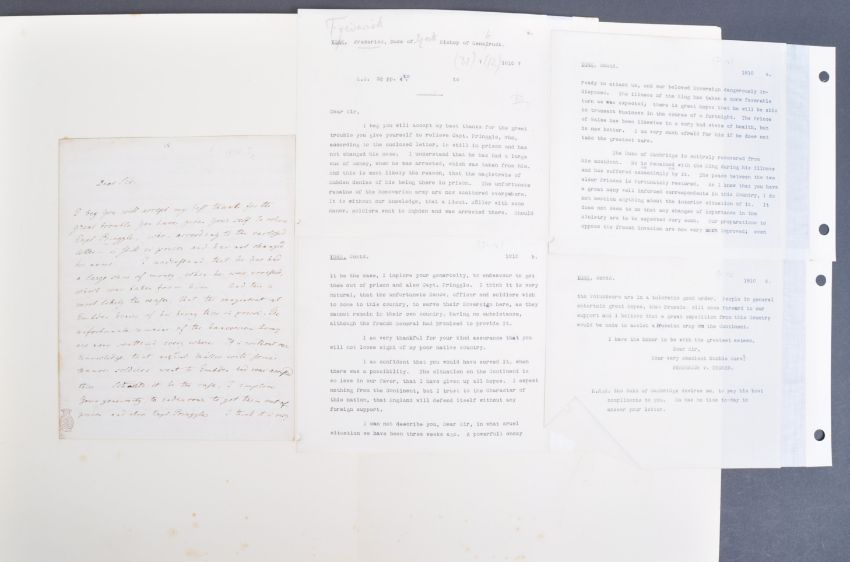 Dear Sir.
I beg you will accept my best thanks for the
great trouble you have given your self to relieve
Capt. Pringgle, who according to the enclosed
letter is still in prison and has not changed
his name. I understand that he has had
a large sum of money when he was arrested,
which was taken from him. And this is
most likely the reason, that the magistrate at
Embden denies of his being there in prison. The
unfortunate remains of the Hanoverian Army
are now scattered every where. It is without our
knowledge, that
soldiers went to Embden and was arrested
there. Should it be the case, I implore
Your generosity to endeavour to get them out of
prison and also Capt. Pringgle. I think it is very
Frederick
Frederick, Duke of York Bishop of Osnabruck.
1810
A.L.S. to
Dear Sir,
I beg you will accept my best thanks for the great
trouble you give yourself to relieve Capt. Pringgle, who,
according to the enclosed letter, is still in prison and has
not changed his name. I understand that he has had a large
sum of money, when he was arrested, which was taken from him,
and this is most likely the reason, that the magistrate of
Embden denies of his being there in prison. The unfortunate
remains of the Hanoverian army are now scattered everywhere.
It is without our knowledge, that a Lieut. with some
soldiers went to Embden and was arrested there. Should
contd. 1810
it be the case, I implore your generosity, to endeavour to get
them out of prison and also Capt. Pringgle. I think it is very
natural, that the unfortunate officer and soldiers wish
to come to this country, to serve their Sovereign here, as they
cannot remain in their own country. Having no subsistance,
although the french General had promised to provide it.
I am very thankful for your kind assurance that you
will not loose sight of my poor native country.
I am confident that you would have served it, when
there was a possibility. The situation on the Continent is
so low in our favor, that I have given up all hopes. I expect
nothing from the Continent, but I trust to the Character of
this nation, that England will defend itself without any
foreign support.
I can not describe you, Dear Sir, in what cruel
situation we have been three weeks ago. A powerfull enemy
contd. 1810
ready to attack us, and our beloved Sovereign dangerously in-
disposed. The illness of the King has taken a more favorable
turn as was expected; there is great hopes that he will be able
to transact business in the course of a fortnight. The Prince
of Wales has been likewise in a very bad state of health, but
is now better. I am very much afraid for him if he does not
take the greatest care.
The Duke of Cambridge is entirely recovered from
his accident. He remained with the King during his illness
and has suffered exceedingly by it. The peace between the two
elder Princes is fortunately restored. As I know that you have
a great many well informed correspondents in this Country, I do
not mention anything about the interior situation of it. It
does not seem to me that any changes of importance in the
ministry are to be expected very soon. Our preparations to
oppose the french invasion are very much improved; even
contd. 1810
the volunteers are in a tolerable good order. People in general
entertain great hopes, that Prussia will come forward to our
support and I believe that a great expedition from this Country
would be made to assist a Prussian army on the Continent.
I have the honor to be with the greatest esteem.
Dear Sir,
Your very obedient humble Servt.
FREDERICK
The Duke of Cambridge desires me, to pay his best
compliments to you. He has no time to-day to
answer your letter.